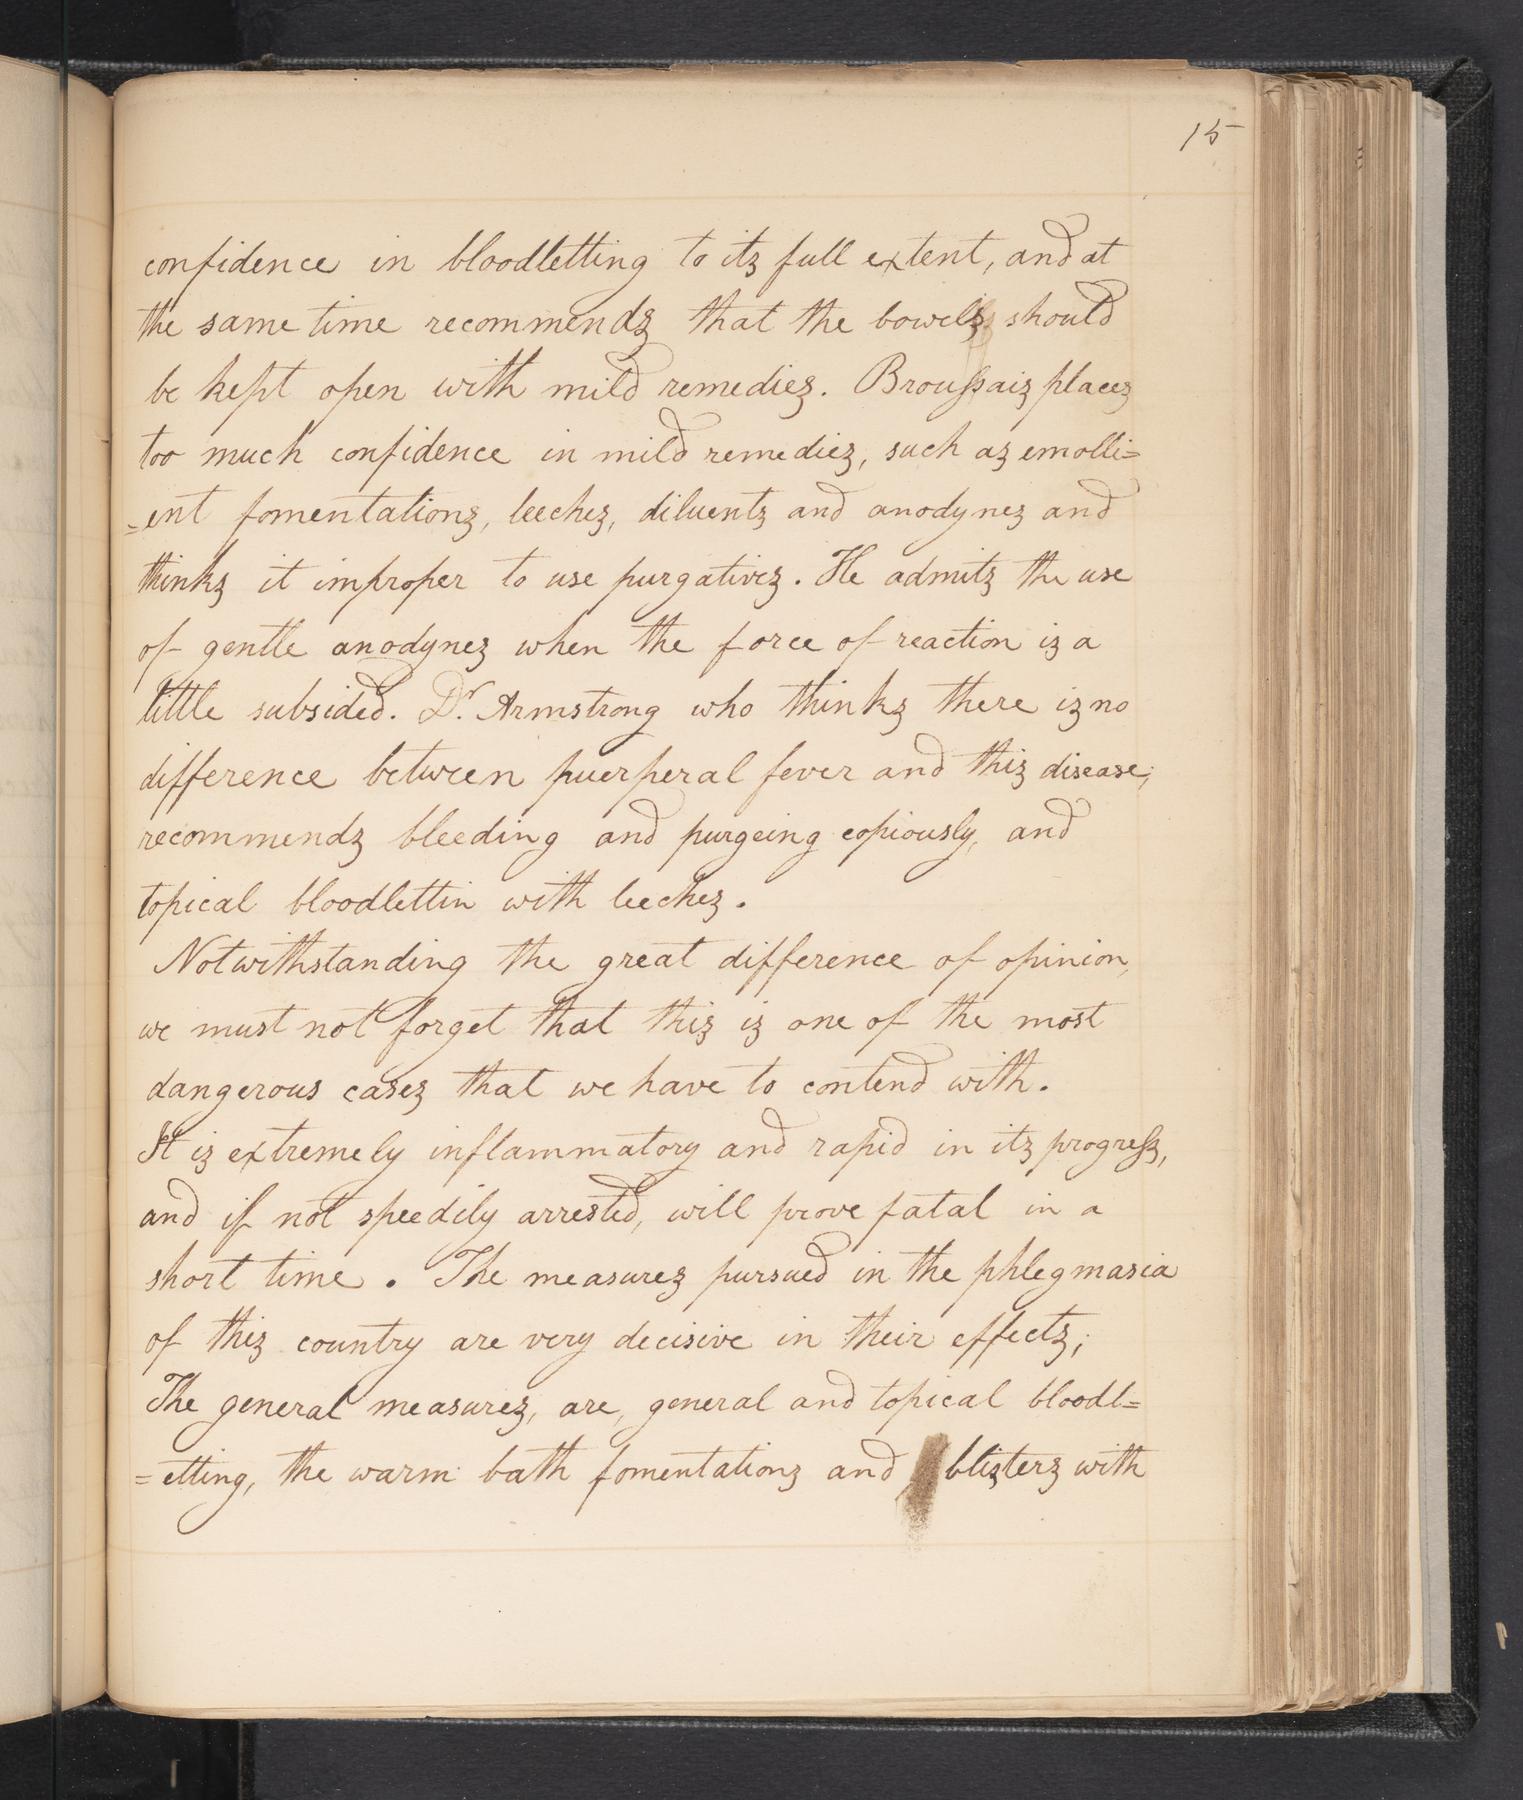 15
confidence in bloodletting to its full extent, and at
the same time recommends that the bowels should
be kept open with mild remedies. Broussais places
too much confidence in mild remedies, such as emolli=
=ent fomentations, leeches, diluents and anodynes and
thinks it improper to use purgatives. He admits the use
of gentle anodynes when the force of reaction is a
little subsided. Dr. Armstrong who thinks there is no
difference between puerperal fever and this disease;
recommends bleeding and purgeing copiously, and
topical bloodlettin with leeches.
Notwithstanding the great difference of opinion,
we must not forget that this is one of the most
dangerous cases that we have to contend with.
It is extremely inflammatory and rapid in its progress,
and if not speedily arrested, will prove fatal in a
short time. The measures pursued in the phlegmasia
of this country are very decisive in their effects;
The general measures, are, general and topical bloodl=
=etting, the warm bath fomentations and blisters with